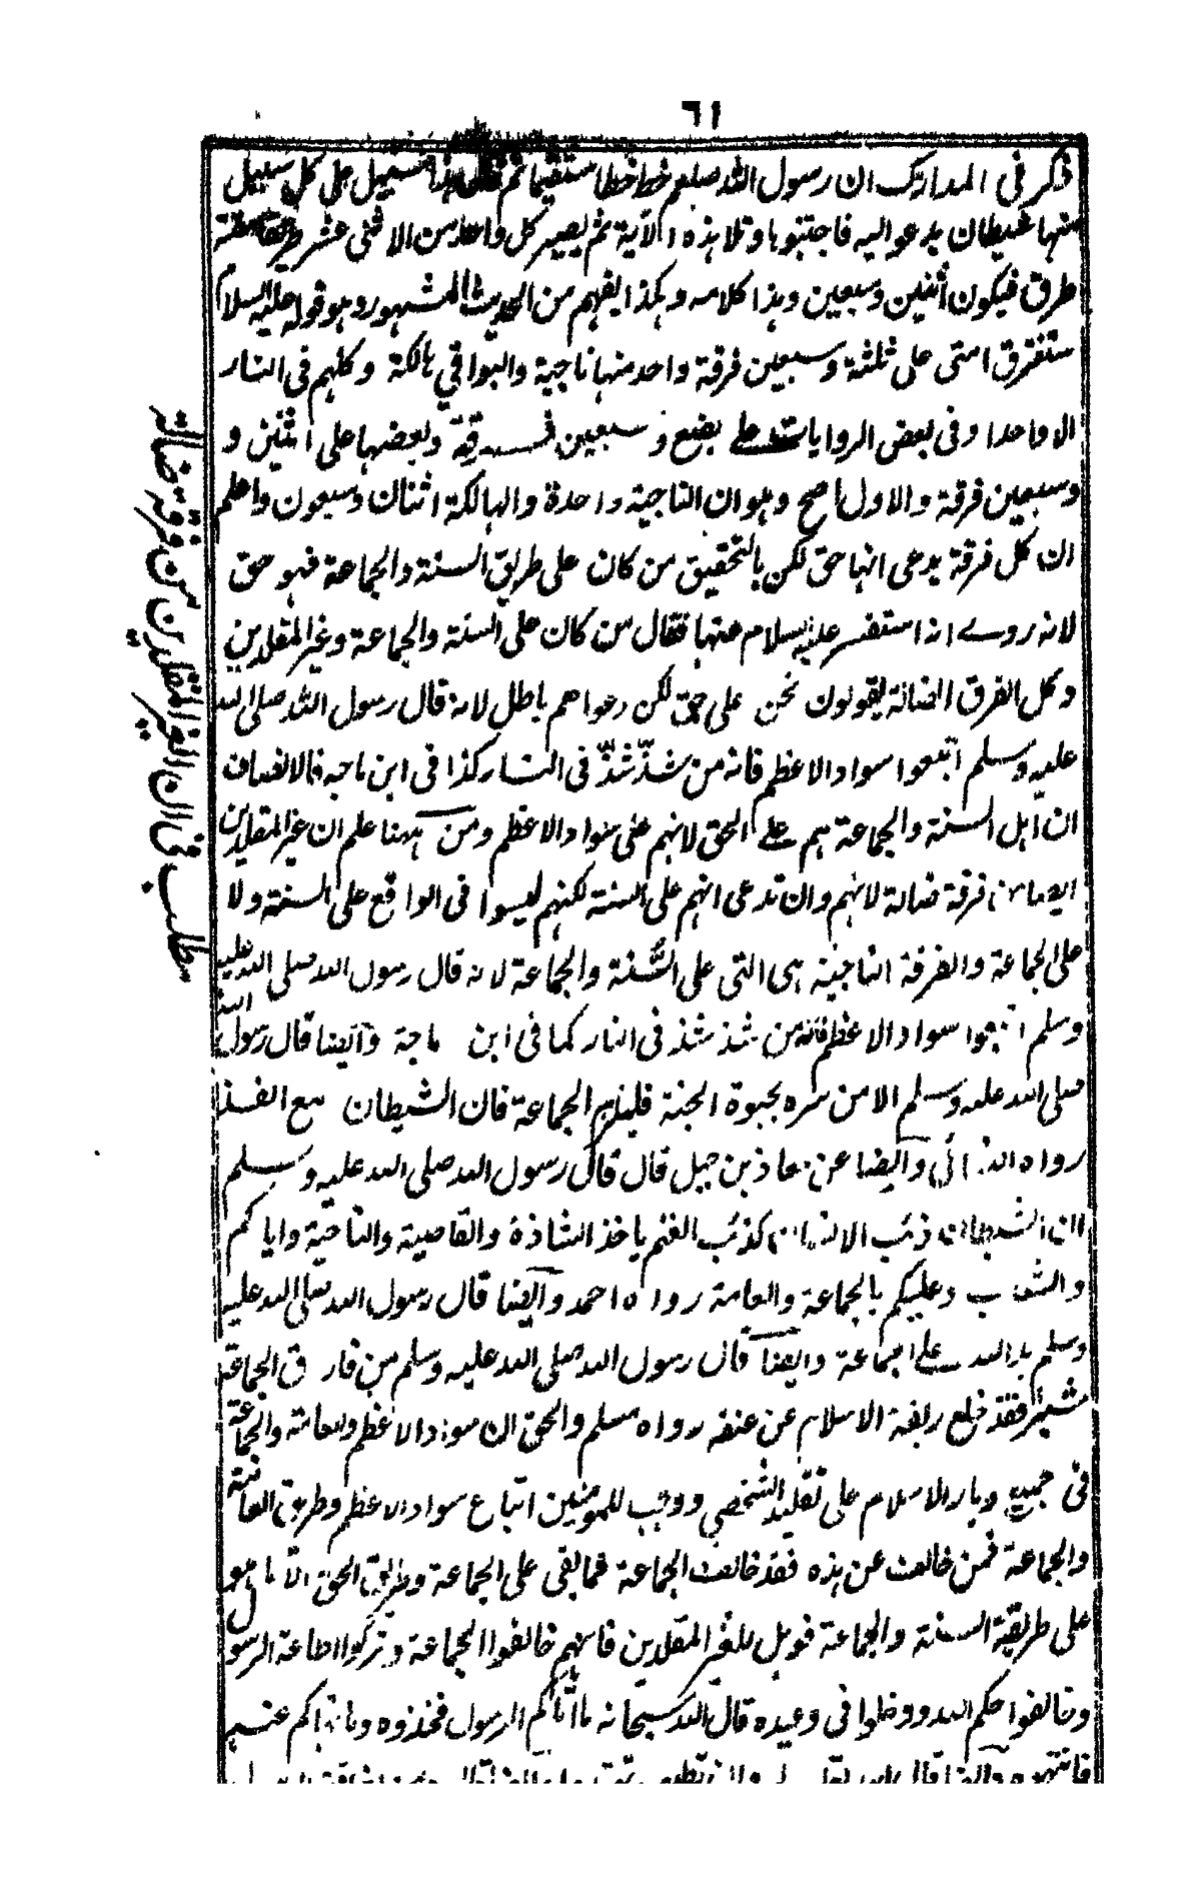 ٦١
ذكر فى المدارك ان رسول الله صلعم خط خطا مستقيما ثم قال هذا سبيل على كل سبيل
منها شيطان يدعو اليه فاجتنبوها وتلا هذه الآية ثم يصير كل واحد من الاثنى عشر طريقا ستة
طرق فيكون أثنين وسبعين وهذا كلامه وهكذا يفهم من الحديث المشهور وهو قوله عليه السلام
ستفترق امتى على ثلثة وسبعين فرقة واحد منها ناجية والبواقي هالكة وكلهم فى النار
الا واحدا وفى بعض الروايات على بضع وسبعين فرقة وبعضها على اثنين و
وسبعين فرقة والاول اصح وهو ان الناجية واحدة والهالكة اثنان وسبعون واعلم
ان كل فرقة يدعى انها حق لكن بالتحقيق من كان على طريق السنة والجماعة فهو حق
لانه روے انه استفسر عليه السلام عنها فقال من كان على السنة والجماعة وغير المقلدين
وكل الفرق الضالة يقولون نحن على حق لكن دعواهم باطل لانه قال رسول الله صلى الله
عليه وسلم اتبعوا سواد الاعظم فانه من شذّ شذّ فى النار كذا فى ابن ماجه فالانصاف
ان اهل السنة والجماعة هم على الحق لانهم على سواد الاعظم ومن ههنا علم ان غير المقلدين
ايضا من فرقة ضالة لانهم وان تدعى انهم على السنة لكنهم ليسوا فى الواقع على السنة ولا
على الجماعة والفرقة الناجية هى التى على السُّنة والجماعة لانه قال رسول الله صلى الله عليه
وسلم اتبعوا سواد الاعظم فانه من شذ شذ فى النار كما فى ابن ماجة وأيضا قال رسول الله
صلى الله عليه وسلم الا من سره بحبوة الجنة فليلزم الجماعة فان الشيطان مع الفذ
رواه النسائى وأيضا عن معاذ بن جبل قال قال رسول الله صلى الله عليه وسلم
ان الشيطان ذئب الانسان كذئب الغنم ياخذ الشاذة والقاصية والناحية واياكم
والشعاب وعليكم بالجماعة والعامة رواه احمد وأيضا قال رسول الله صلى الله عليه
وسلم يد الله على الجماعة وايضا قال رسول الله صلى الله عليه وسلم من فارق الجماعة
شبرًا فقد خلع ربقة الاسلام عن عنقه رواه مسلم والحق ان سواد الاعظم والعامة والجماعة
فى جميع ديار الاسلام على تقليد الشخصي ووجب للمومنين اتباع سواد الاعظم وطريق العامة
والجماعة فمن خالف عن هذه فقد خالف الجماعة فما بقى على الجماعة وطريق الحق الا ما هو
على طريقة السنة والجماعة فويل للغير المقلدين فانهم خالفوا الجماعة وتركوا اطاعة الرسول
وخالفوا حكم الله ودخلوا فى وعيده قال الله سبحانه ما أتاكم الرسول فخذوه وما نهاكم عنه
مطلب فى ان الغير المقلدين من فرقة ضالة